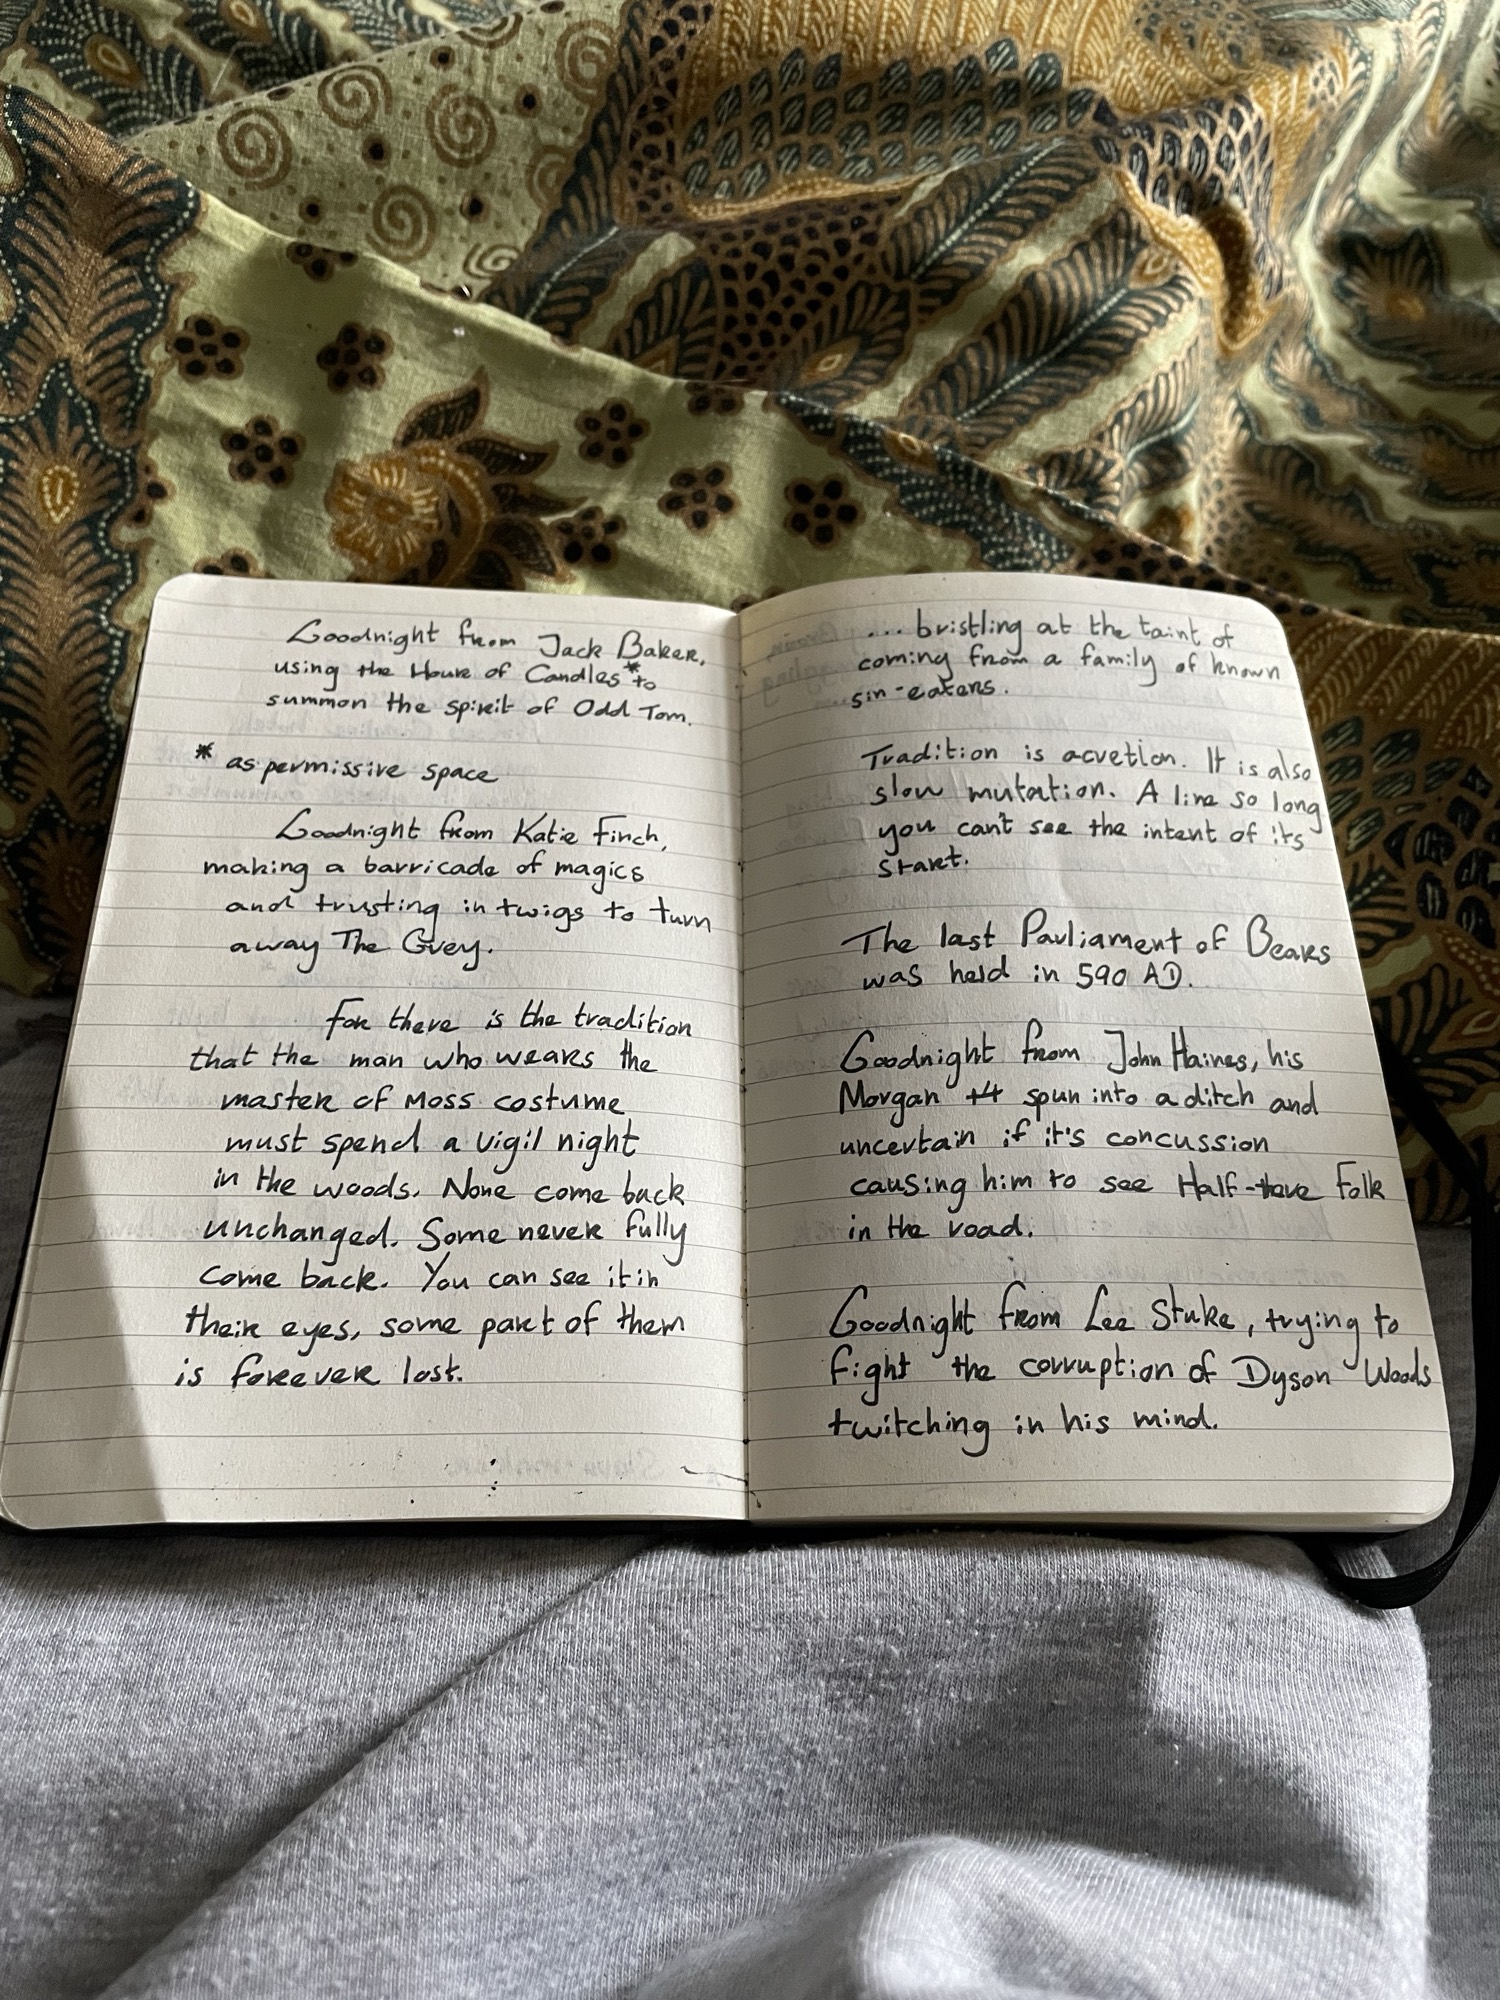 Goodnight from Jack Baker,
using the House of Candles* to
summon the spirit of Odd Tom.
* as permissive space
Goodnight from Katie Finch,
making a barricade of magics
and trusting in twigs to turn
away The Grey.
For there is the tradition
that the man who wears the
master of Moss costume
must spend a vigil night
in the woods. None come back
unchanged. Some never fully
come back. You can see it in
their eyes, some part of them
is forever lost.
... bristling at the taint of
coming from a family of known
sin-eaters.
Tradition is accretion. It is also
slow mutation. A line so long
you can't see the intent of its
start.
The last Parliament of Bears
was held in 590 AD.
Goodnight from John Haines, his
Morgan +4 spun into a ditch and
uncertain if it's concussion
causing him to see Half-there Folk
in the road.
Goodnight from Lee Stuke, trying to
fight the corruption of Dyson Woods
twitching in his mind.